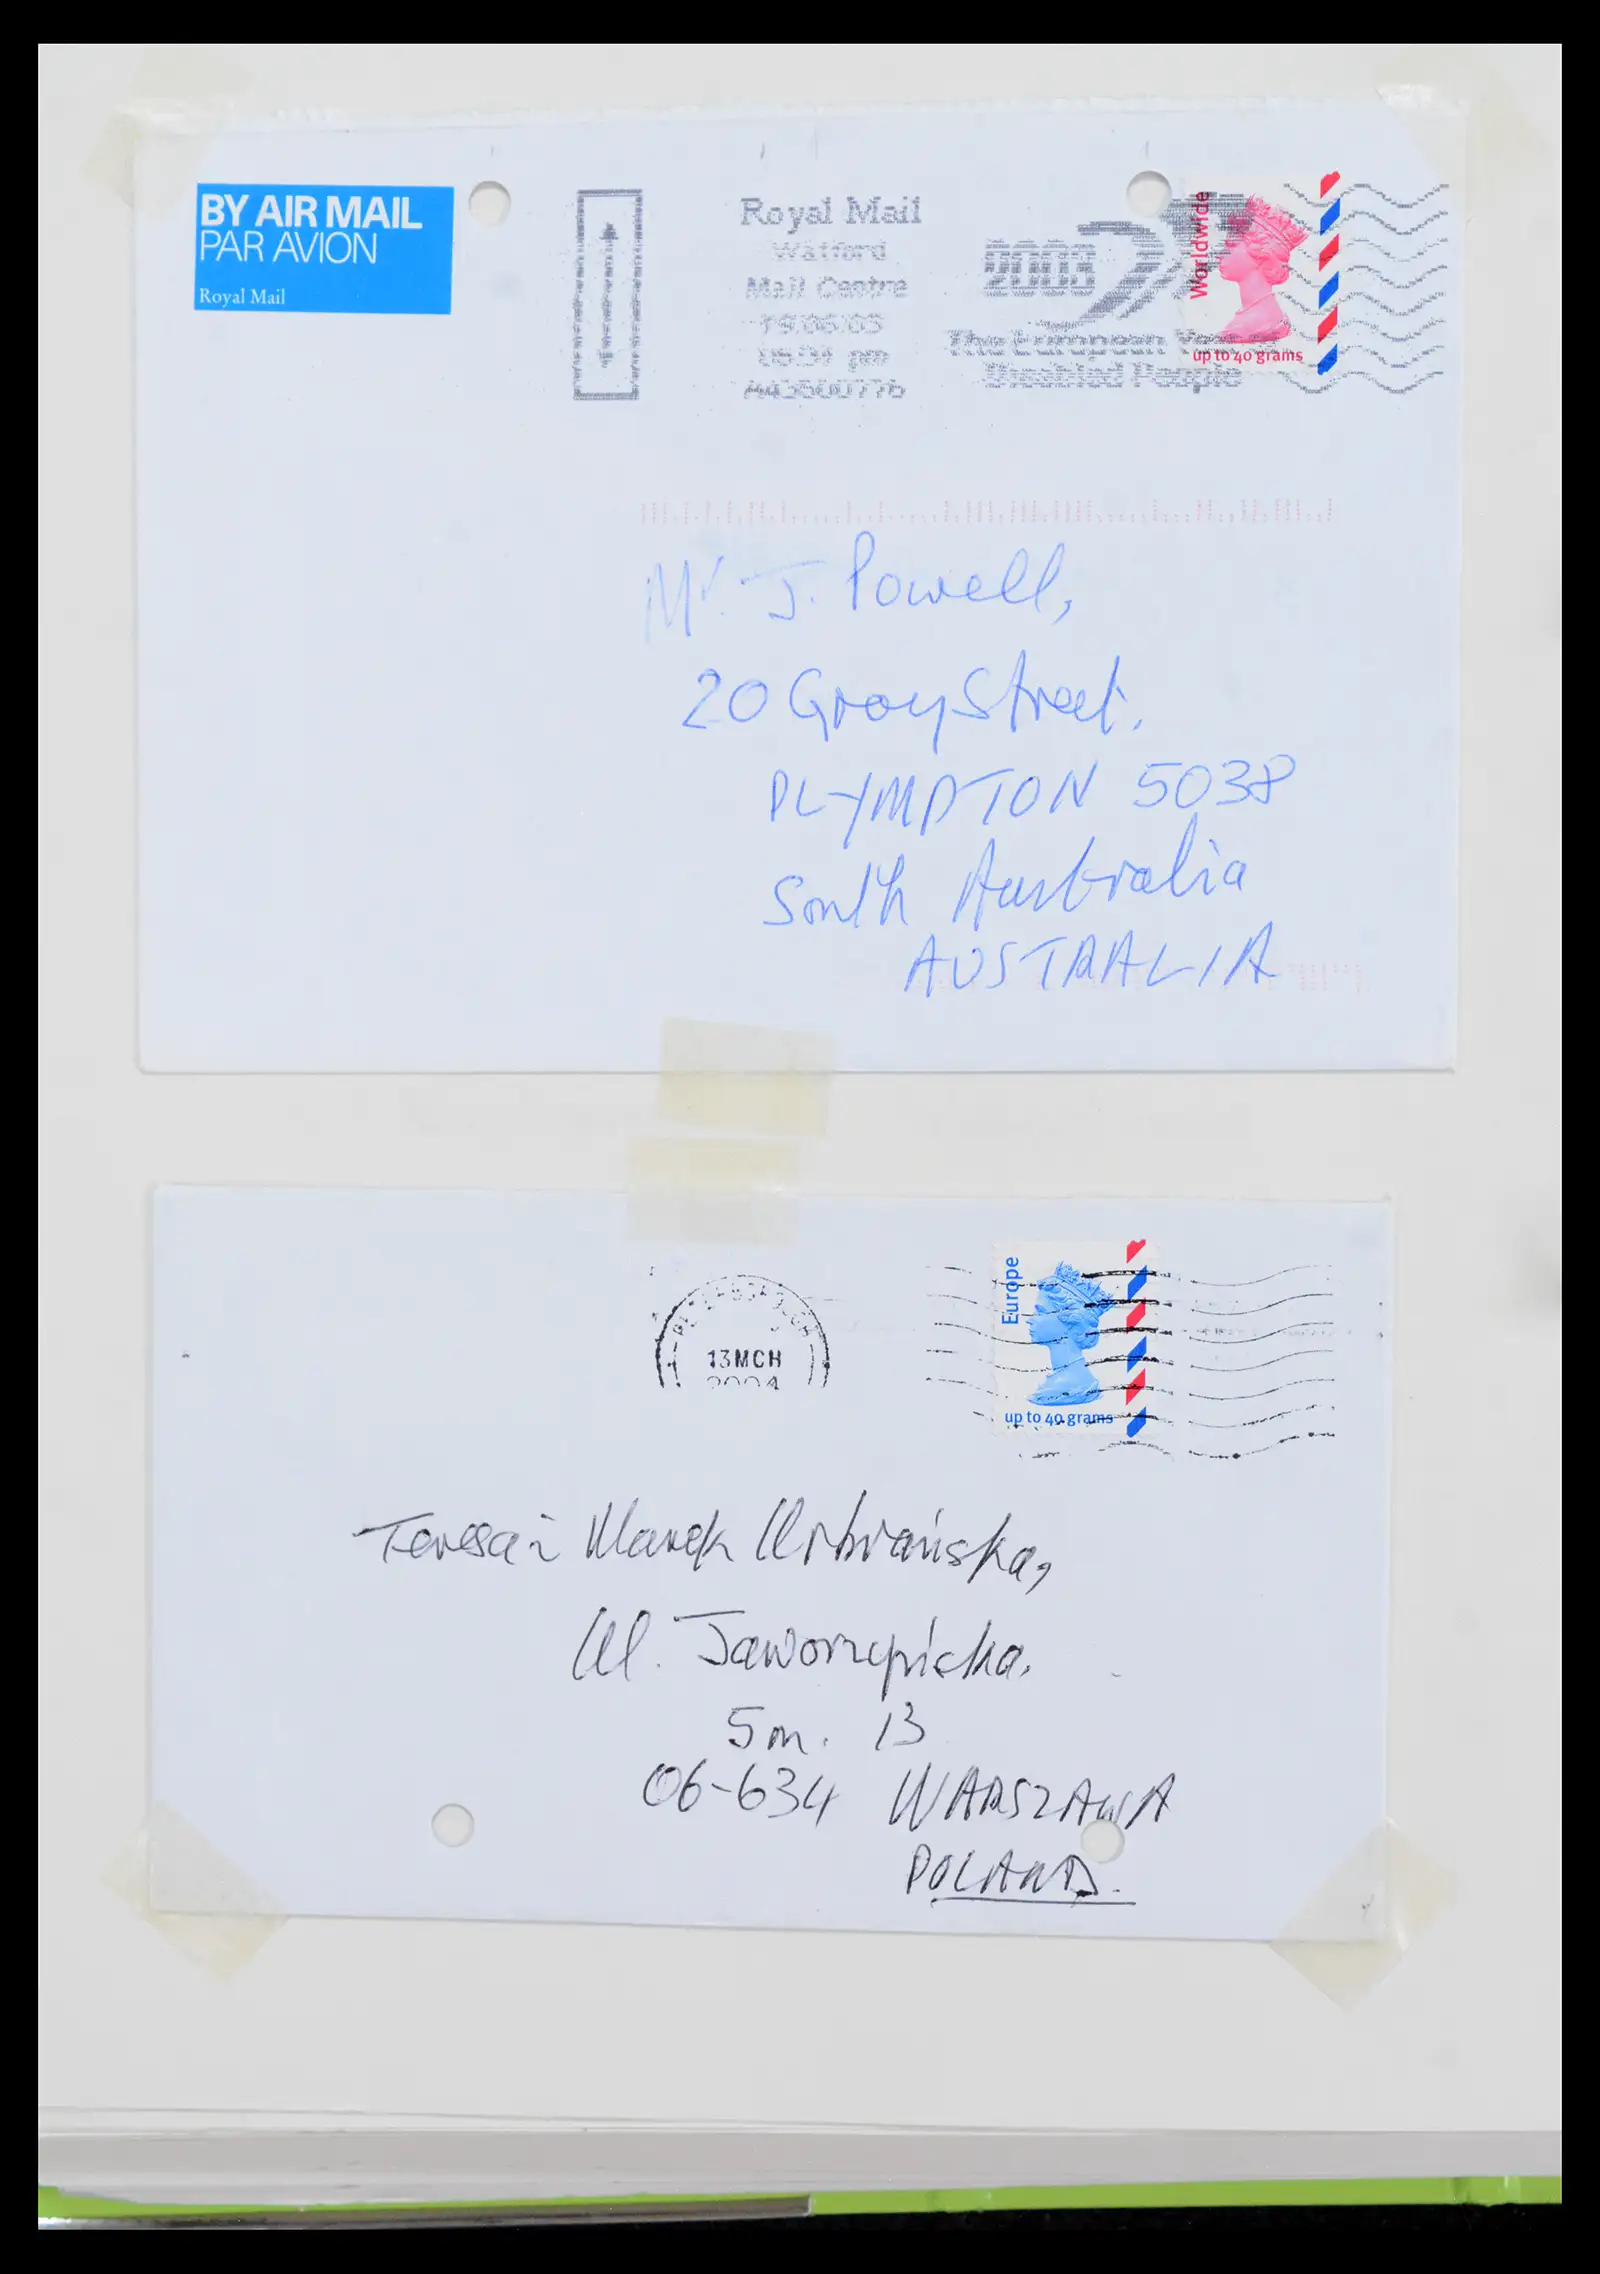 BY AIR MAIL
PAR AVION
Royal Mail
Royal Mail
Watford
Mail Centre
19.06.03
06:31 pm
A43500776
2003
The European Year of
Disabled People
Worldwide
up to 40 grams
Mr. J. Powell,
20 Gray Street.
PLYMPTON 5038
South Australia
AUSTRALIA
PETERBOROUGH
13MCH
2004
Europe
up to 40 grams
Teresa i Marek Urbrańska,
Ul. Jaworzyńska.
5m. 13
06-634 WARSZAWA
POLAND.